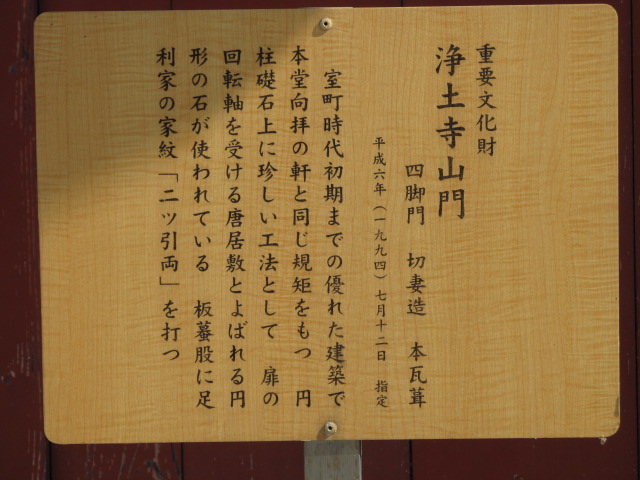 重要文化財
浄土寺山門
四脚門　切妻造　本瓦葺
平成六年（一九九四）七月十二日　指定
室町時代初期までの優れた建築で
本堂向拝の軒と同じ規矩をもつ　円
柱礎石上に珍しい工法として　扉の
回転軸を受ける唐居敷とよばれる円
形の石が使われている　板蟇股に足
利家の家紋「二ツ引両」を打つ